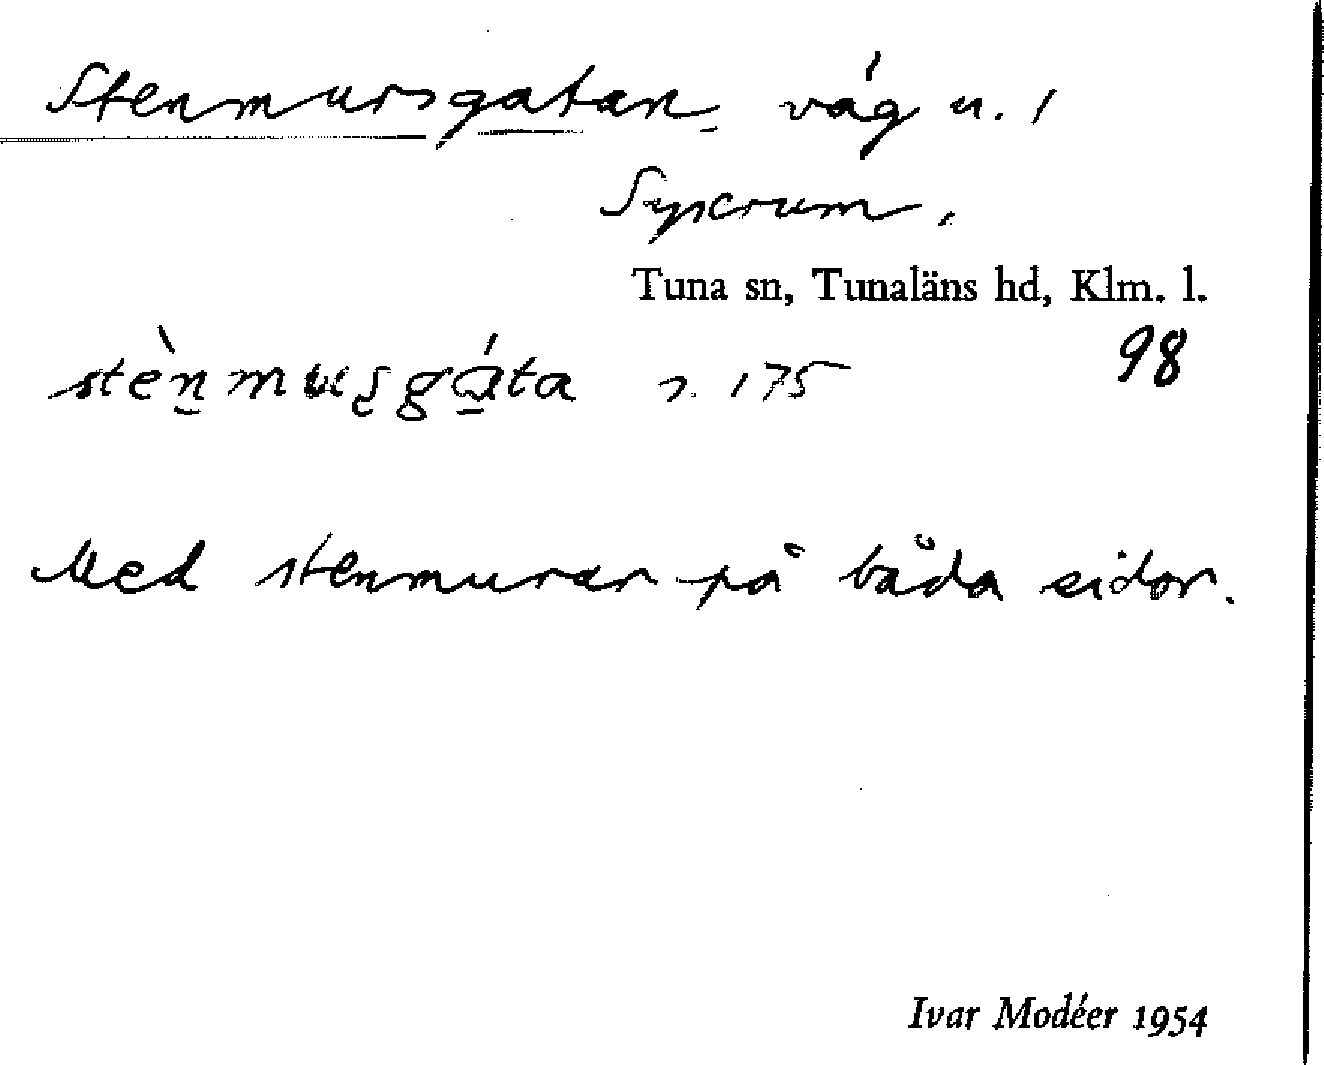 Stenmursgatan, väg u. 1
Syserum.
Tuna sn, Tunaläns hd, Klm. l.
98
stèn̠muʂgá̠ta s. 175
Med stenmurar på båda sidor.
Ivar Modéer 1954